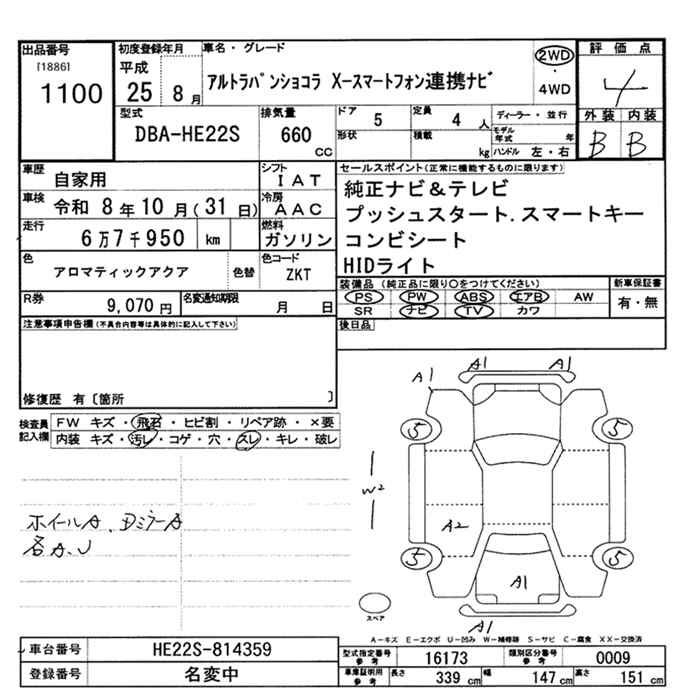 出品番号 初度登録年月 車名・グレード 評価点
[1886] 平成 2WD
1100 25 8月 アルトラパンショコラ X-スマートフォン連携ナビ ・ 4
4WD
型式 排気量 ドア 定員 ディーラー・並行 外装 内装
DBA-HE22S 660 CC 5 4人 モデル年式 年 B B
形状 積載 kg ハンドル 左・右
車歴 自家用 シフト IAT セールスポイント(正常に機能するものに限ります)
車検 令和 8年10月(31日) 冷房 AAC 純正ナビ&テレビ
走行 6万7千950 km 燃料 ガソリン プッシュスタート.スマートキー
コンビシート
色 アロマティックアクア 色替 色コード ZKT HIDライト
R券 9,070円 名変通知期限 月 日 装備品(純正品に限り○をつけてください) 新車保証書
PS PW ABS エアB AW 有・無
SR ナビ TV カワ
注意事項申告欄(不具合内容等は具体的に記入して下さい) 後日品
修復歴 有〔箇所 〕
検査員記入欄 FW キズ・飛石・ヒビ割・リペア跡・×要
内装 キズ・汚レ・コゲ・穴・スレ・キレ・破レ
A1 A1
A1
5 5
W2
A2
ホイールA、DミラーA
各A、U
5 5
A1
スペア
A1
A-キズ E-エクボ U-凹み W-補修跡 S-サビ C-腐食 XX-交換済
車台番号 HE22S-814359 型式指定番号 参考 16173 類別区分番号 参考 0009
登録番号 名変中 車庫証明用 参考 長さ 339 cm 幅 147 cm 高さ 151 cm